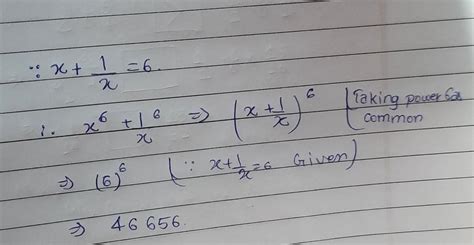 ∵ x + 1/x = 6.
∴ x^6 + 1^6/x ⇒ (x+1/x)^6 [Taking power 6 as common
⇒ (6)^6 (∵ x+1/x=6 Given)
⇒ 46656.